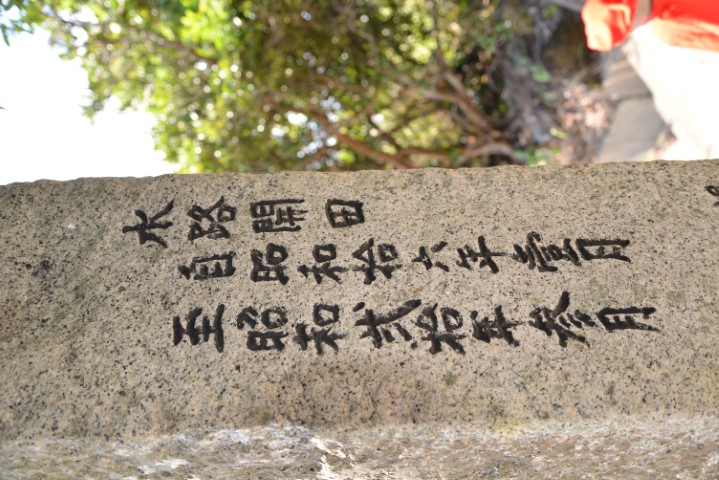 水路開田
自昭和拾六年壹月
至昭和弐拾年参月